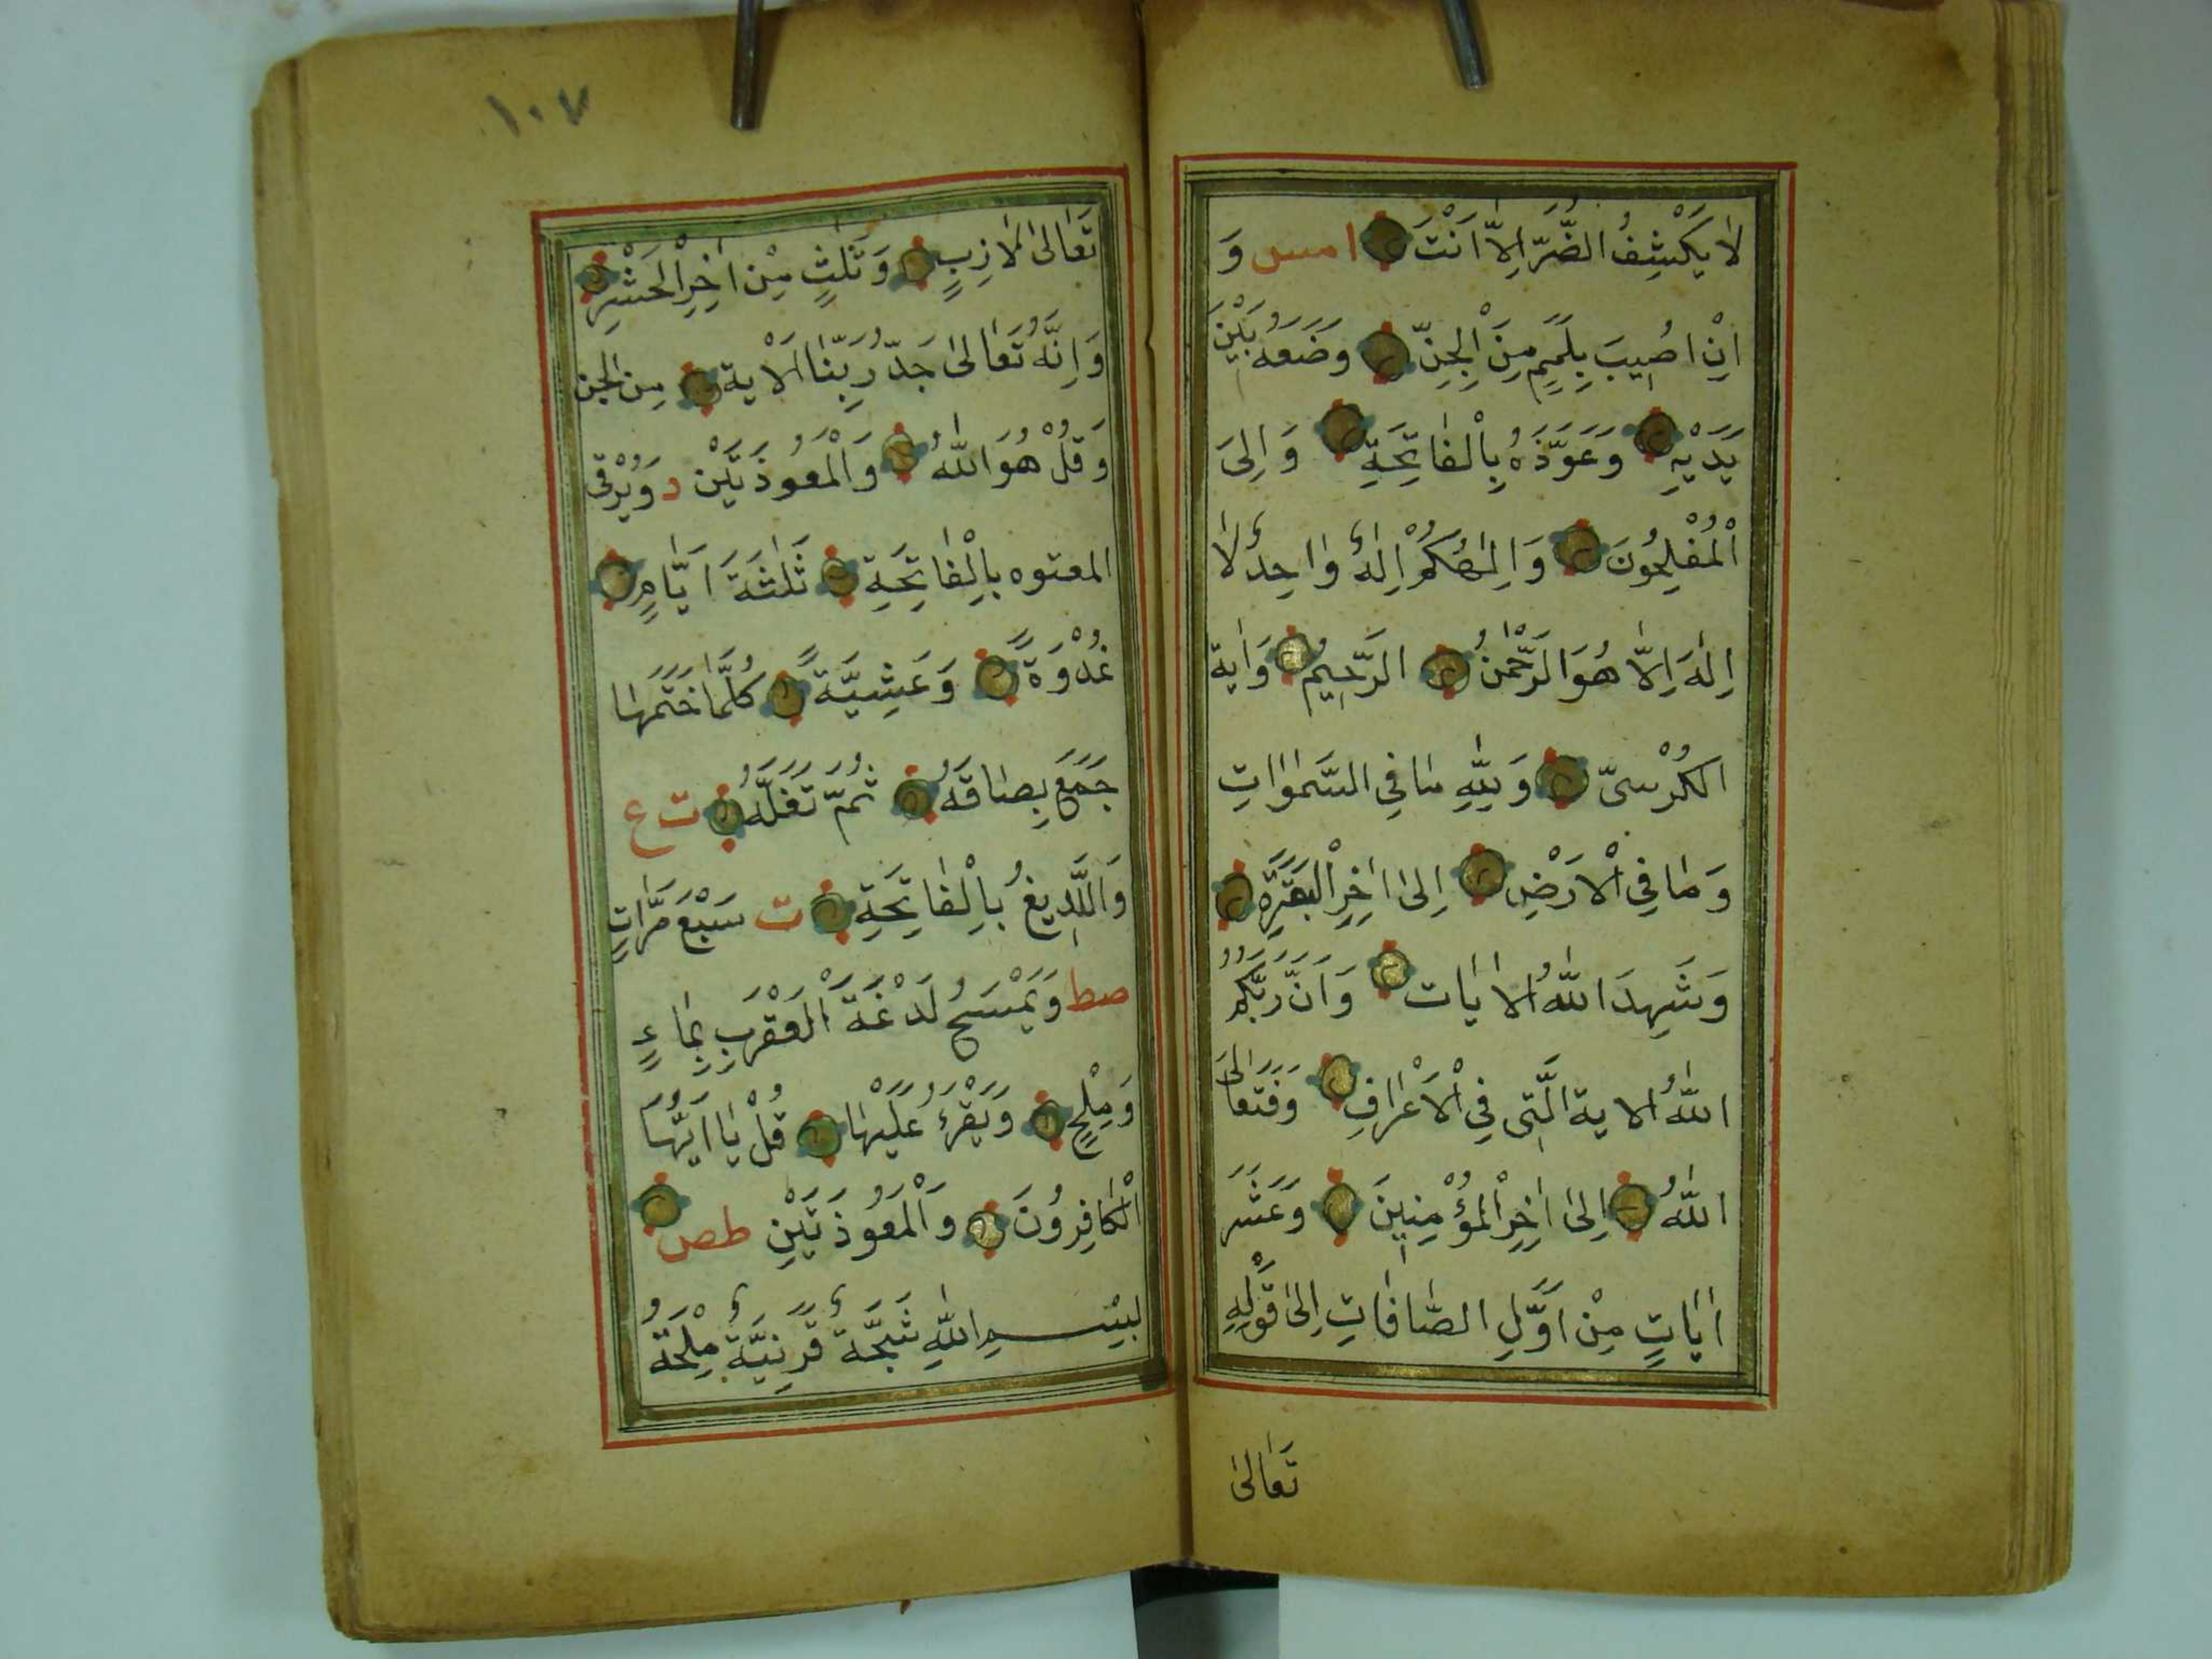 لَا يَكْشِفُ الضُّرَّ اِلَّا اَنْتَ امس وَ
اِنْ اُصِيبَ بِلَمَمٍ مِنَ الْجِنِّ وَضَعَهُ بَيْنَ
يَدَيْهِ وَعَوَّذَهُ بِالْفَاتِحَةِ وَاِلىَ
الْمُفْلِحُونَ وَاِلٰهُكُمْ اِلٰهٌ وَاحِدٌ لَا
اِلٰهَ اِلَّا هُوَ الرَّحْمٰنُ الرَّحِيمُ وَاٰية
الكُرْسىّ وَلِلّٰهِ مَا فِي السَّمٰوَاتِ
وَمَا فِي الْاَرْضِ اِلىٰ اٰخِرِ الْبَقَرَةِ
وَشَهِدَ اللّٰهُ الاٰيات وَاَنَّ رَبَّكُمُ
اللّٰهُ الاية الَّتِى فِي الْاَعْرَافِ وَفَتَعَالَى
اللّٰهُ اِلىٰ اٰخِرِ الْمُؤْمِنِينَ وَعَشَرَ
اٰيَاتٍ مِنْ اَوَّلِ الصَّافَاتِ اِلىٰ قَوْلِهِ
تَعَالىٰ
١٠٧
تَعَالىٰ لَازِبٍ وَثَلٰثٍ مِنْ اٰخِرِ الْحَشْرِ
وَاِنَّهُ تَعَالىٰ جَدُّ رَبِّنَا الْاٰية مِن الجن
وَقُلْ هُوَ اللّٰهُ وَالْمُعَوِّذَتَيْنِ د وَيُرْقى
المعتوه بِالْفَاتِحَةِ ثَلٰثَةَ اَيَّامٍ
غُدْوَةً وَعَشِيَّةً كُلَّمَا خَتَمَهَا
جَمَعَ بِصَاقَهُ ثُمَّ تَفَلَهُ ت ع
وَاللَّدِيغُ بِالْفَاتِحَةِ ت سَبْعَ مَرَّاتٍ
صط وَيَمْسَحُ لَدْغَةَ الْعَقْرَبِ بِمَاءٍ
وَمِلْحٍ وَيَقْرَءُ عَلَيْهَا قُلْ يَا اَيُّهَا
الْكَافِرُونَ وَالْمُعَوِّذَتَيْنِ طص
بِسْمِ اللّٰهِ شَجَّةٌ قَرَنِيَّةٌ مِلْحَةُ